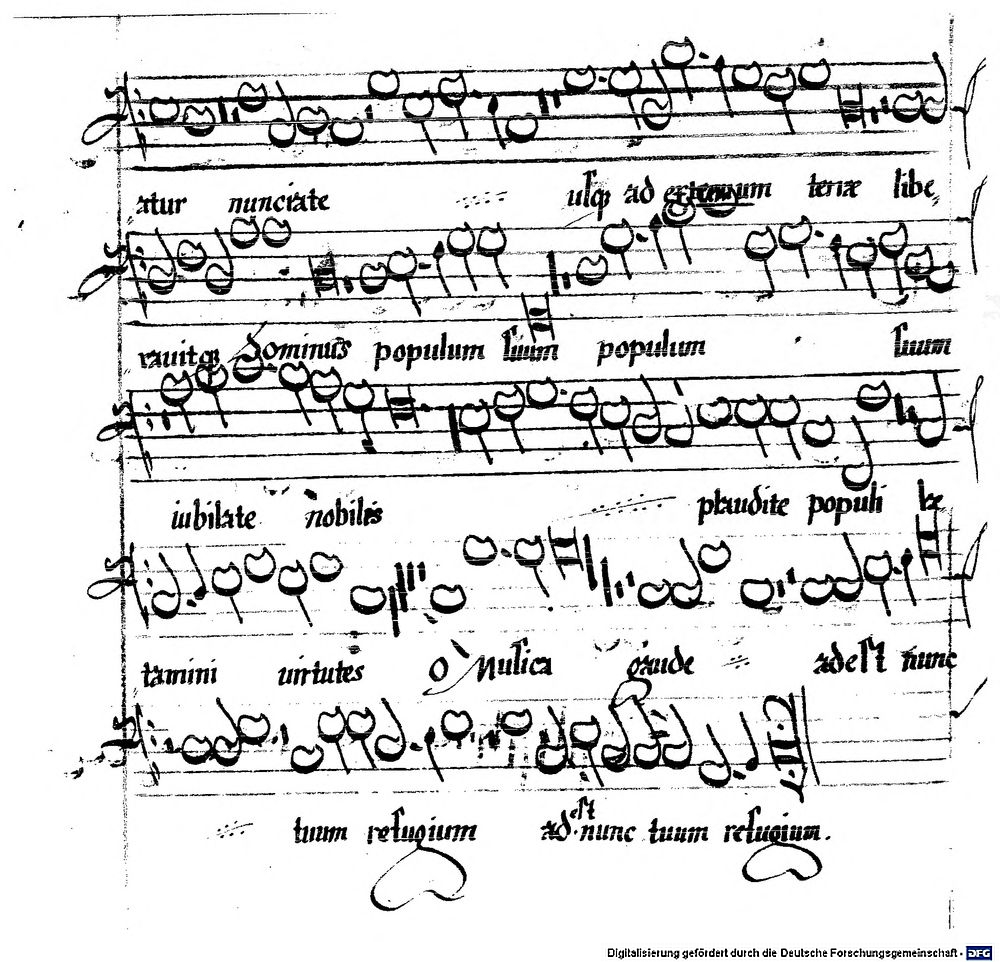 atur nunciate usq ad extremum terræ libe,
rauitq dominus populum suum populum suum
iubilate nobilis plaudite populi læ
tamini virtutes O Musica gaude adest nunc
tuum refugium adest nunc tuum refugium.
Digitalisierung gefördert durch die Deutsche Forschungsgemeinschaft - DFG